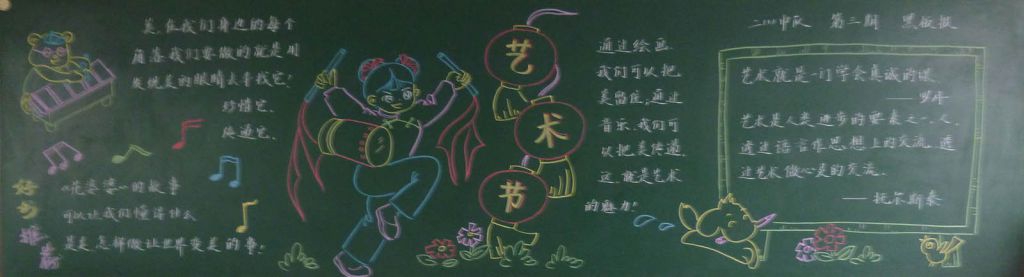 美,在我们身边的每个
角落,我们要做的就是用
发现美的眼睛去寻找它!
珍惜它.
传通它.
好
书
推
荐
《花婆婆》的故事
可以让我们懂得什么
是美,怎样做让世界变美的事!
艺
术
节
通过绘画.
我们可以把
美留住;通过
音乐,我们可
以把美传递.
这就是艺术
的魅力!
二(二)中队 第三期 黑板报
艺术就是一门学会真诚的课.
——罗丹
艺术是人类进步的要素之一.人
透过语言作思想上的交流.透
过艺术做心灵的交流.
——托尔斯泰